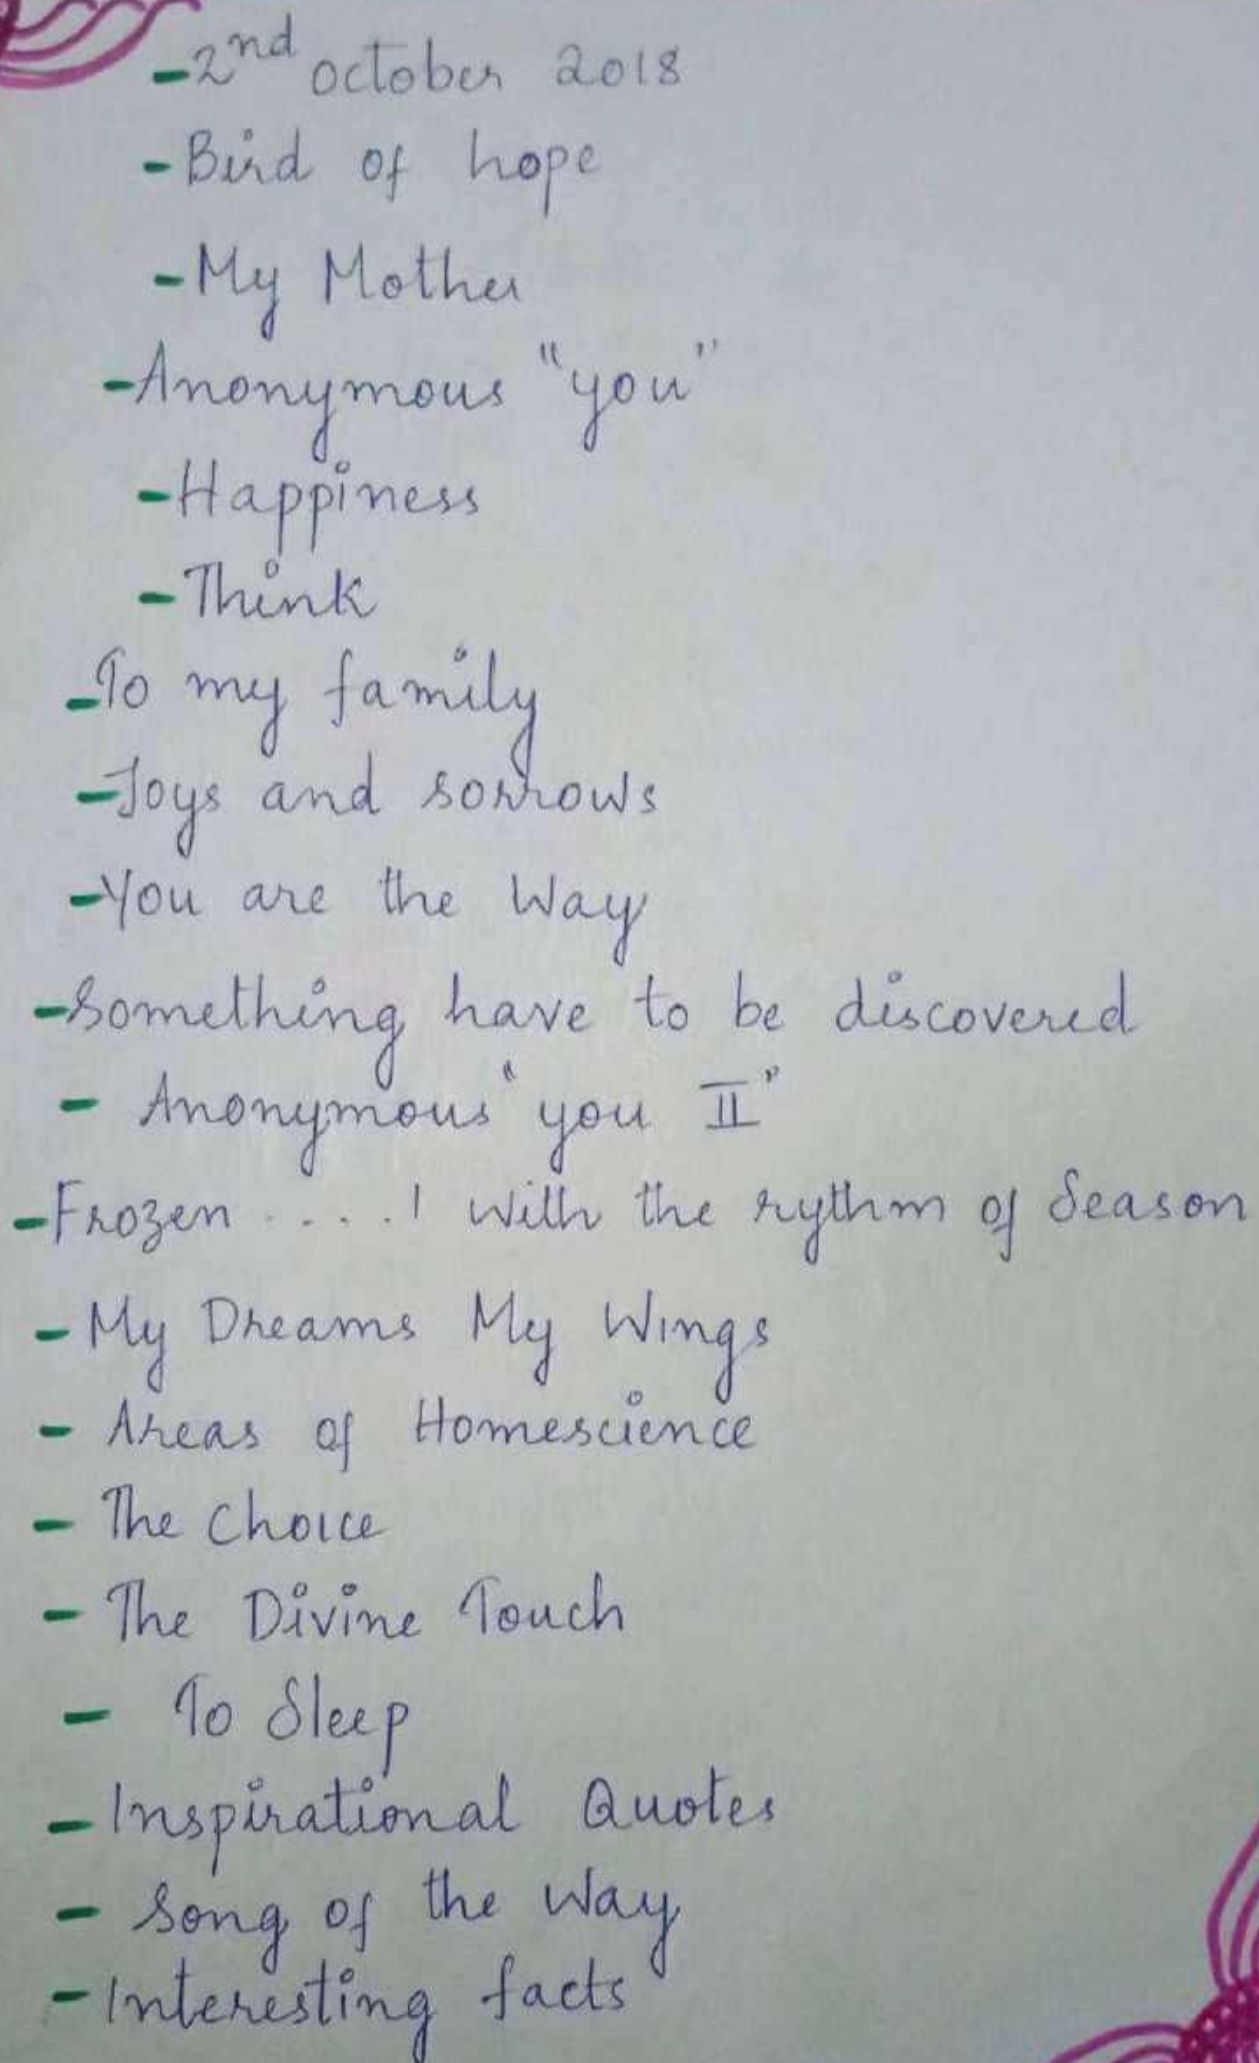 - 2nd october 2018
- Bird of hope
- My Mother
- Anonymous "you"
- Happiness
- Think
- To my family
- Joys and sorrows
- You are the Way
- Something have to be discovered
- Anonymous "you II"
- Frozen ....! with the rythm of Season
- My Dreams My Wings
- Areas of Homescience
- The choice
- The Divine Touch
- To Sleep
- Inspirational Quotes
- Song of the way
- Interesting facts